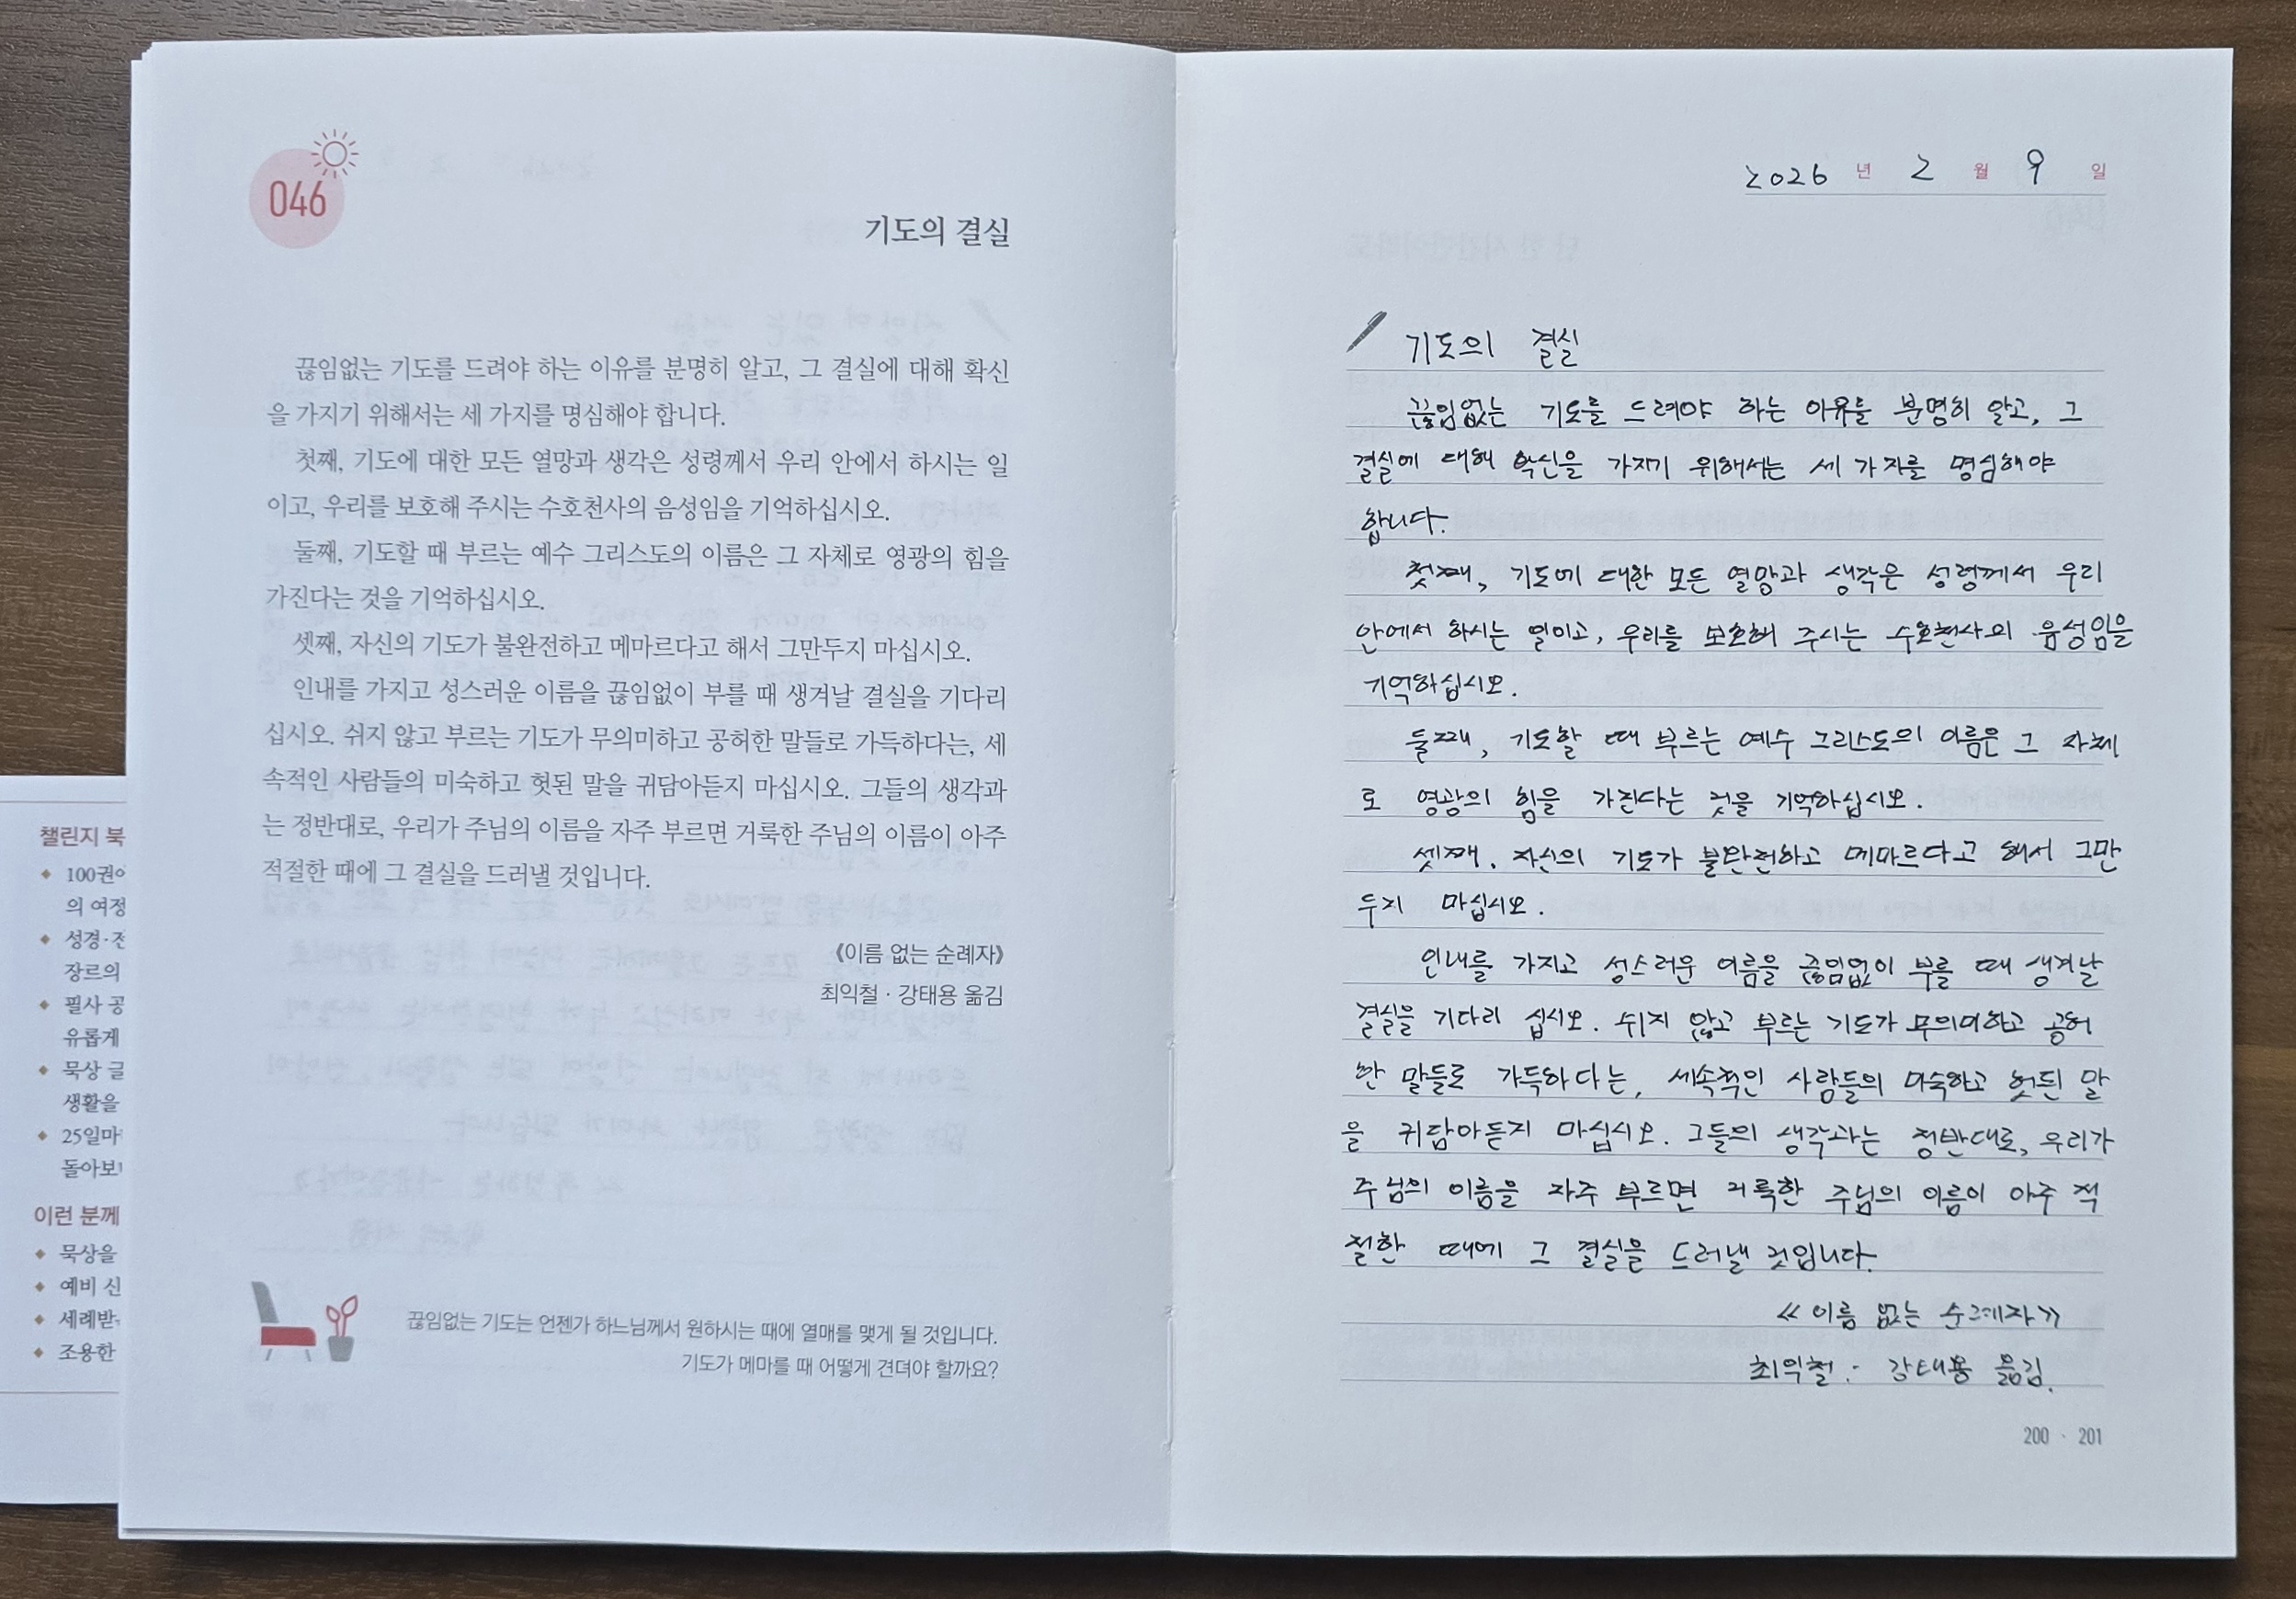 046
기도의 결실
끊임없는 기도를 드려야 하는 이유를 분명히 알고, 그 결실에 대해 확신
을 가지기 위해서는 세 가지를 명심해야 합니다.
첫째, 기도에 대한 모든 열망과 생각은 성령께서 우리 안에서 하시는 일
이고, 우리를 보호해 주시는 수호천사의 음성임을 기억하십시오.
둘째, 기도할 때 부르는 예수 그리스도의 이름은 그 자체로 영광의 힘을
가진다는 것을 기억하십시오.
셋째, 자신의 기도가 불완전하고 메마르다고 해서 그만두지 마십시오.
인내를 가지고 성스러운 이름을 끊임없이 부를 때 생겨날 결실을 기다리
십시오. 쉬지 않고 부르는 기도가 무의미하고 공허한 말들로 가득하다는, 세
속적인 사람들의 미숙하고 헛된 말을 귀담아듣지 마십시오. 그들의 생각과
는 정반대로, 우리가 주님의 이름을 자주 부르면 거룩한 주님의 이름이 아주
적절한 때에 그 결실을 드러낼 것입니다.
《이름 없는 순례자》
최익철 · 강태용 옮김
끊임없는 기도는 언젠가 하느님께서 원하시는 때에 열매를 맺게 될 것입니다.
기도가 메마를 때 어떻게 견뎌야 할까요?
챌린지 북
100권
의 여정
성경·전
장르의
필사 공
유롭게
묵상 글
생활을
25일마
돌아보
이런 분께
묵상을
예비 신
세례받
조용한
2026 년 2 월 9 일
기도의 결실
끊임없는 기도를 드려야 하는 이유를 분명히 알고, 그
결실에 대해 확신을 가지기 위해서는 세 가지를 명심해야
합니다.
첫째, 기도에 대한 모든 열망과 생각은 성령께서 우리
안에서 하시는 일이고, 우리를 보호해 주시는 수호천사의 음성임을
기억하십시오.
둘째, 기도할 때 부르는 예수 그리스도의 이름은 그 자체
로 영광의 힘을 가진다는 것을 기억하십시오.
셋째. 자신의 기도가 불완전하고 메마르다고 해서 그만
두지 마십시오.
인내를 가지고 성스러운 이름을 끊임없이 부를 때 생겨날
결실을 기다리 십시오. 쉬지 않고 부르는 기도가 무의미하고 공허
한 말들로 가득하다는, 세속적인 사람들의 미숙하고 헛된 말
을 귀담아듣지 마십시오. 그들의 생각과는 정반대로, 우리가
주님의 이름을 자주 부르면 거룩한 주님의 이름이 아주 적
절한 때에 그 결실을 드러낼 것입니다.
《이름 없는 순례자》
최익철 · 강태용 옮김.
200 · 201